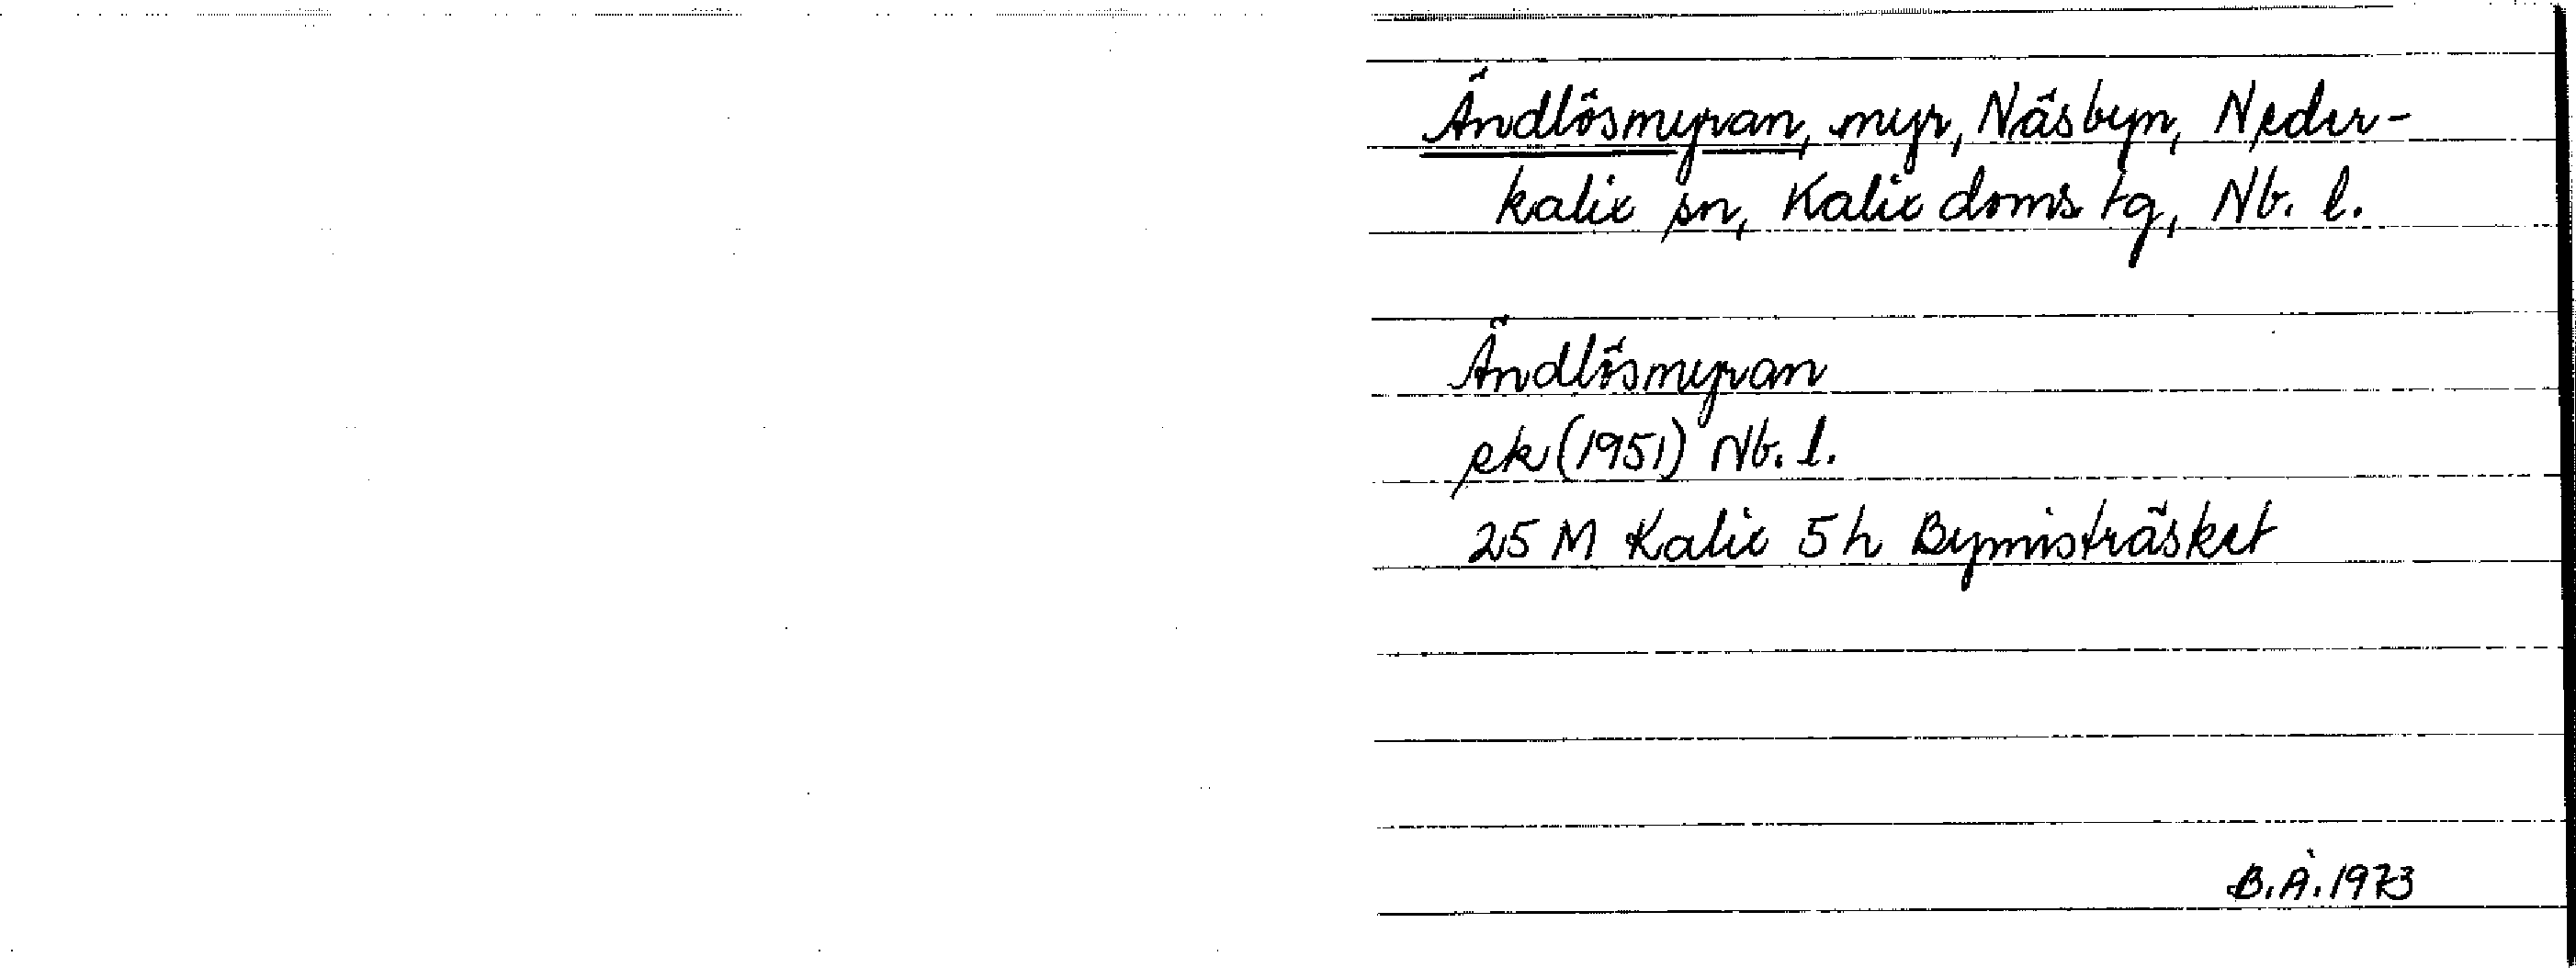 Ändlösmyran, myr, Näsbyn, Neder-
kalix sn, Kalix doms. tg, Nb. l.
Ändlösmyran
ek (1951) Nb. l.
25 M Kalix 5 h Bymisträsket
B.Å. 1973